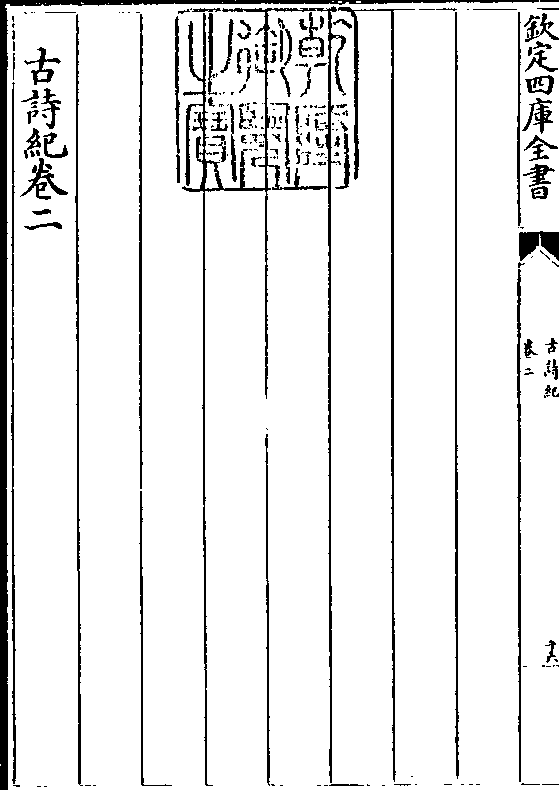 欽定四庫全書
古詩紀
卷二
乾隆
御覽
之寶
古詩紀卷二